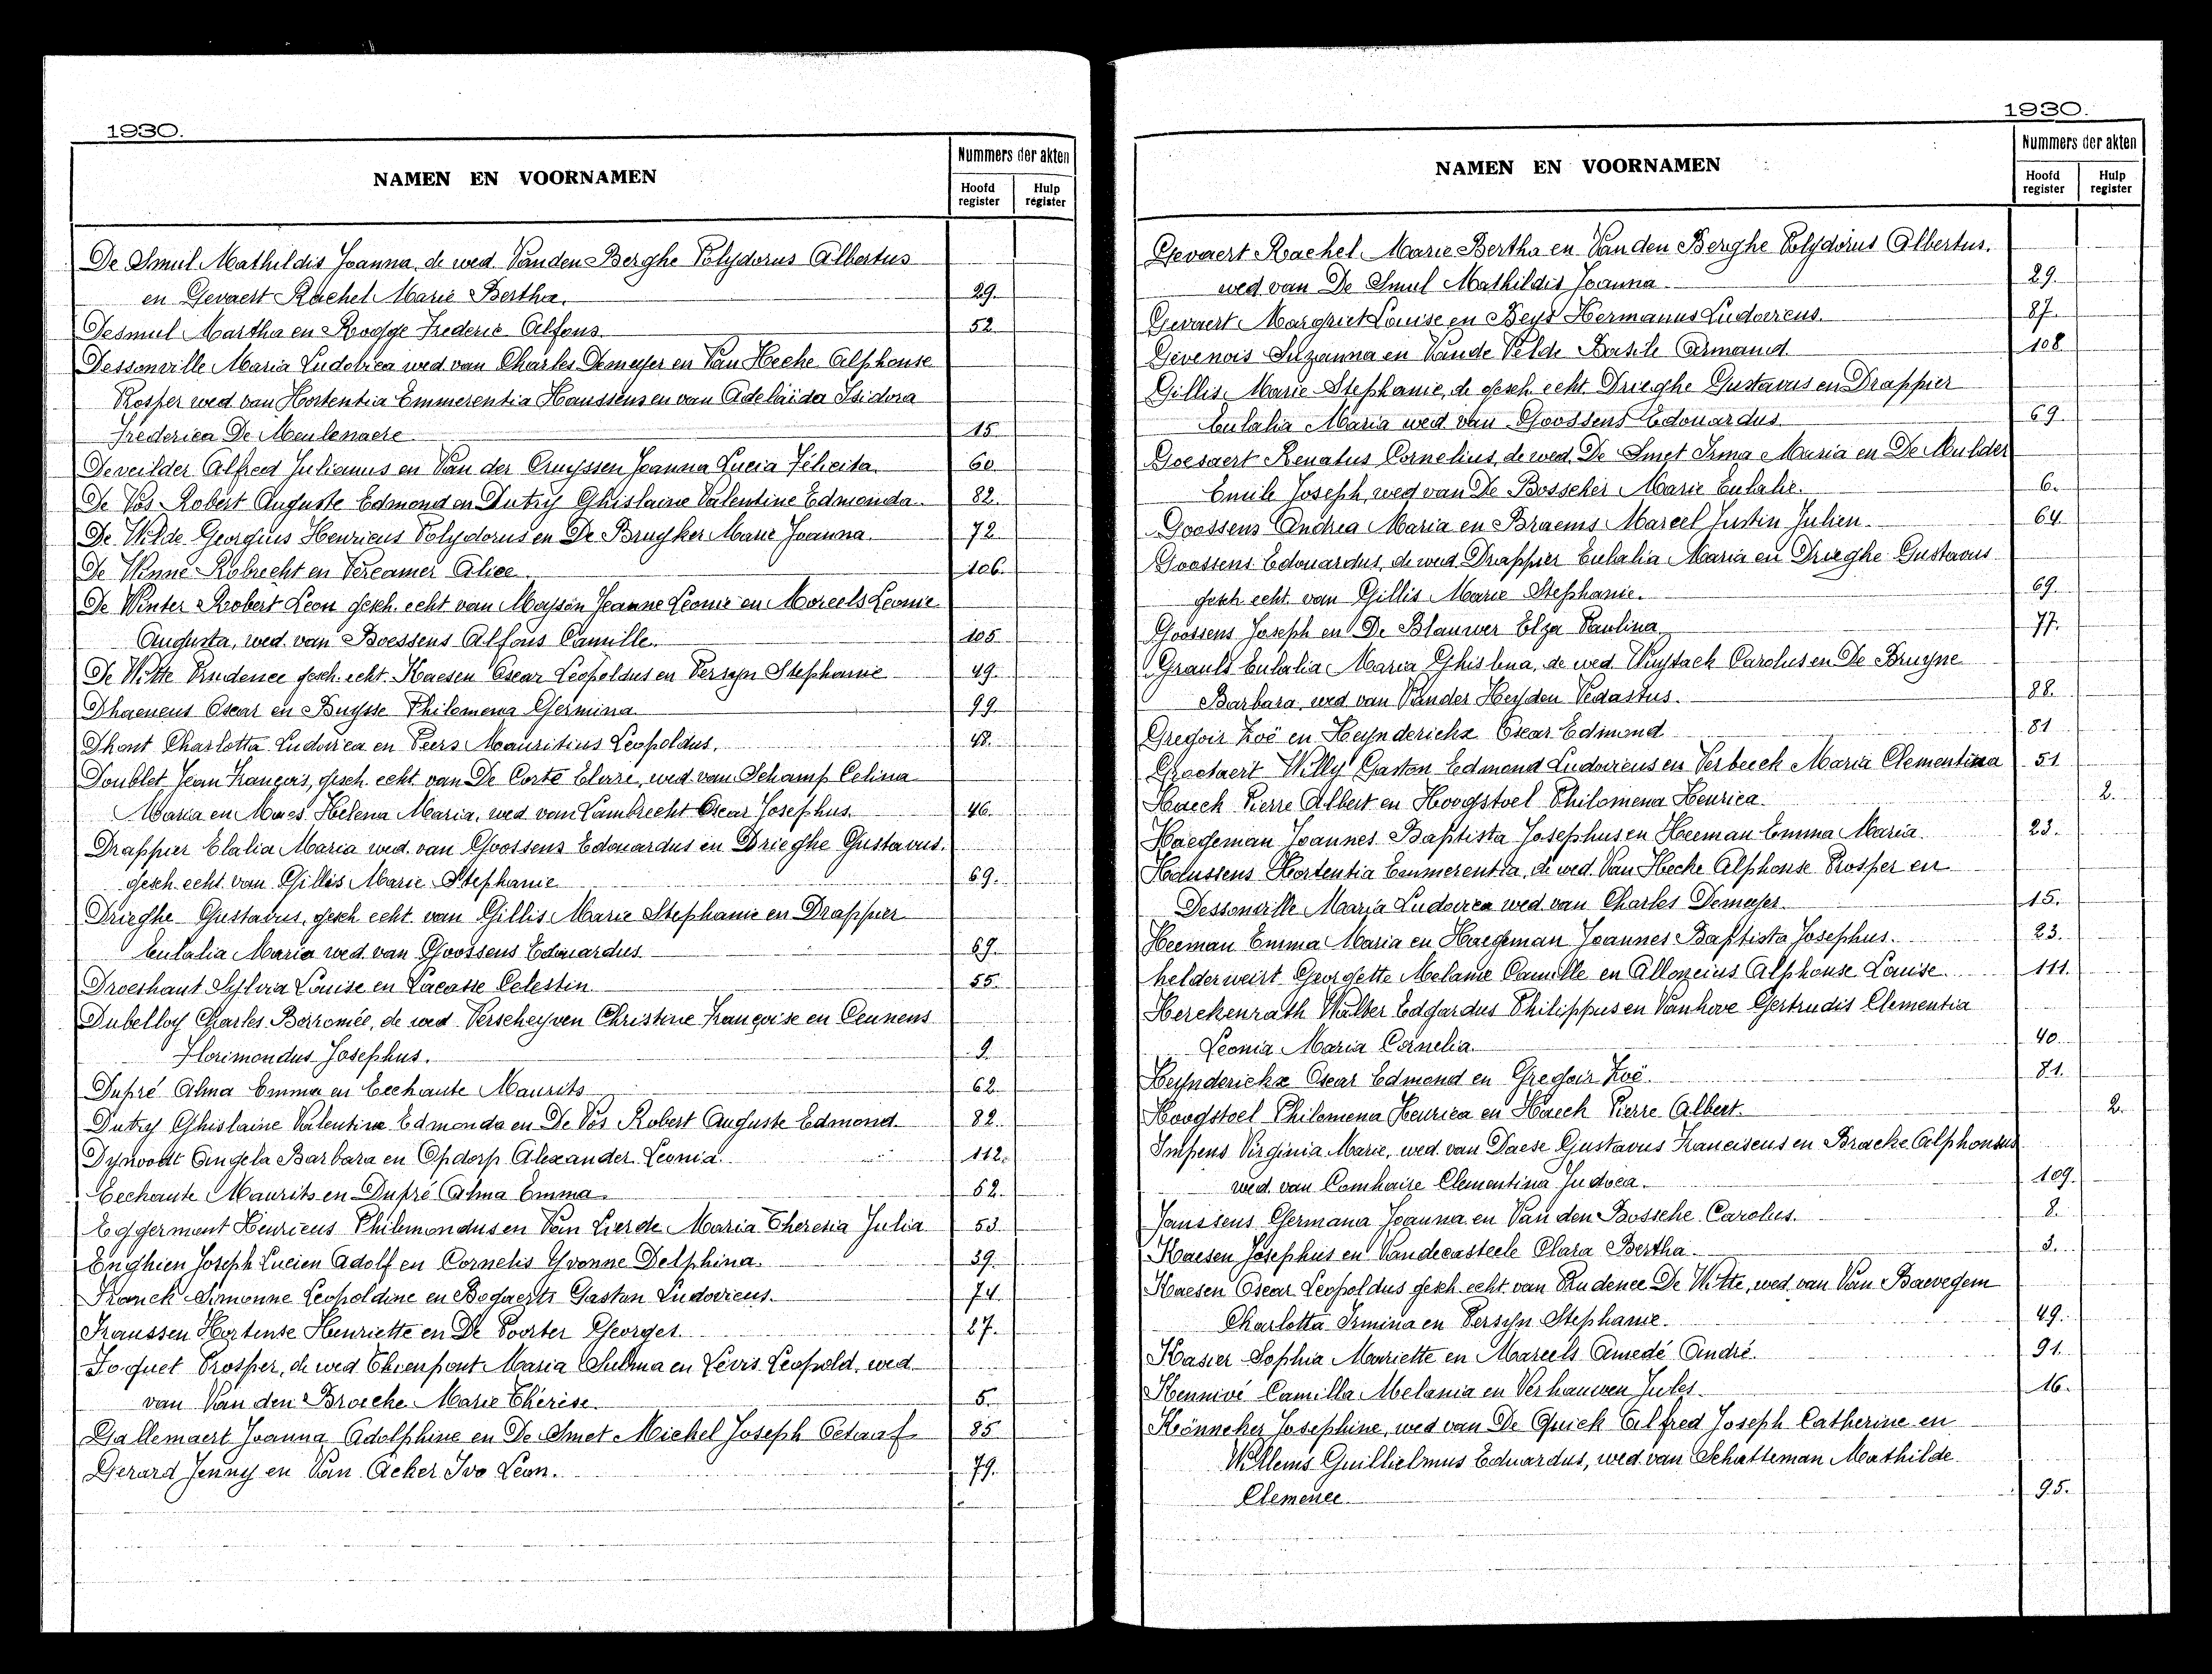 1930.
NAMEN EN VOORNAMEN
Nummers der akten
Hoofd register
Hulp register
De Smul Mathildis Joanna, de wed. Vanden Berghe Polydorus Albertus
en Gevaert Rachel Marie Bertha. 29.
Desmul Martha en Rogge Frederic Alfons 52
Dessonville Maria Ludovica wed. van Charles Demeyer en Van Hecke Alphonse
Prosper wed van Hortentia Emmerentia Haussens en van Adelaïda Isidora
Frederica De Meulenaere 15
Deveilder Alfred Julianus en Van der Cruyssen Joanna Lucia Felicita. 60.
De Vos Robert Auguste Edmond en Dutry Ghislaine Valentine Edmonda. 82.
De Wilde Georgius Henricus Polydorus en De Bruyker Marie Joanna. 72
De Winne Robrecht en Vercamer Alice 106.
De Winter Robert Leon gesch. echt van Moyson Jeanne Leonie en Morcels Leonie
Augusta, wed. van Boessens Alfons Camille. 105
De Witte Prudence gesch. echt. Haesen Oscar Leopoldus en Persyn Stephanie 49.
Dhaeneus Oscar en Buysse Philomena Germina. 99
Dhont Charlotta Ludovica en Peers Mauritius Leopoldus. 48.
Doublet Jean François, gesch. echt van De Corte Elvire, wed van Schamp Celina
Maria en Maes Helena Maria, wed van Lambrecht Oscar Josephus. 46.
Drappier Elalia Maria wed. van Goossens Edouardus en Drieghe Gustavus.
gesch. echt. van Gillis Marie Stephanie 69.
Drieghe Gustavus, gesch echt. van Gillis Marie Stephanie en Drappier
Eulalia Maria wed. van Goossens Edouardus 69.
Droeshaut Sylvia Louise en Lacasse Celestin 55.
Dubelloy Charles Borromée, de wed. Verscheyven Christine Françoise en Ceunens
Florimondus Josephus. 9
Dupré Alma Emma en Eechaute Maurits 62
Dutry Ghislaine Valentina Edmonda en De Vos Robert Auguste Edmond 82.
Dynvoodt Angela Barbara en Opdorp Alexander Leonia. 112.
Eechaute Maurits en Dupré Alma Emma 62.
Eggermont Henricus Philemondus en Van Lierde Maria Theresia Julia 53.
Enghien Joseph Lucien Adolf en Cornelis Yvonne Delphina. 39.
Franck Simonne Leopoldine en Bogaerts Gaston Ludovicus. 74.
Franssen Hortense Henriette en De Poorter Georges. 27.
Foquet Prosper, de wed Thienpont Maria Silvina en Levis Leopold, wed.
van Van den Broecke Marie Thérèse. 5.
Gallemaert Joanna Adolphine en De Smet Michel Joseph Octaaf 85
Gerard Jenny en Van Acker Ivo Leon. 79.
1930.
NAMEN EN VOORNAMEN
Nummers der akten
Hoofd register
Hulp register
Gevaert Rachel Marie Bertha en Vanden Berghe Polydorus Albertus.
wed van De Smul Mathildis Joanna 29.
Gevaert Margriet Louise en Beys Hermanus Ludovicus. 87.
Gevenois Suzanna en Vande Velde Basile Armand. 108.
Gillis Marie Stephanie, de gesch. echt. Drieghe Gustavus en Drappier
Eulalia Maria wed van Goossens Edouardus 69.
Goesaert Renatus Cornelius, de wed. De Smet Irma Maria en De Mulder
Emile Joseph, wed van De Bosscher Marie Eulalie. 6.
Goossens Andrea Maria en Braems Marcel Justin Julien. 64.
Goossens Edouardus, de wed Drappier Eulalia Maria en Drieghe Gustavus
gesch. echt. van Gillis Marie Stephanie. 69.
Goossens Joseph en De Blauwer Elza Paulina 77.
Grauls Eulalia Maria Ghislena, de wed. Wuytack Carolus en De Bruyne
Barbara, wed van Vander Heyden Vedastus. 88.
Gregoir Zoë en Heynderickx Oscar Edmond 81
Grootaert Willy Gaston Edmond Ludovicus en Verbeeck Maria Clementina 51
Haeck Pierre Albert en Hoogstoel Philomena Henrica. 2.
Haegeman Joannes Baptista Josephus en Heeman Emma Maria. 23.
Haussens Hortentia Emmerentia, de wed. Van Hecke Alphonse Prosper en
Dessonville Maria Ludovica wed. van Charles Demeyer. 15.
Heeman Emma Maria en Haegeman Joannes Baptista Josephus. 23.
helderweirt Georgette Melanie Camille en Alloncius Alphonse Louise. 111.
Herckenrath Walter Edgardus Philippus en Vanhove Gertrudis Clementia
Leonia Maria Cornelia. 40.
Heynderickx Oscar Edmond en Gregoir Zoë. 81.
Hoogstoel Philomena Henrica en Haeck Pierre Albert. 2.
Impens Virginia Marie, wed. van Daese Gustavus Franciscus en Bracke Alphonsus
wed. van Comhaire Clementina Judoca. 109.
Janssens Germana Joanna en Van den Bossche Carolus. 8.
Kaesen Josephus en Vandecasteele Clara Bertha. 3.
Kaesen Oscar Leopoldus gesch. echt van Prudence De Witte, wed. van Van Bavegem
Charlotta Irmina en Persyn Stephanie. 49.
Kasier Sophia Mariette en Mareels Amedé André. 91.
Kennivé Camilla Melania en Verhauwen Jules. 16.
Könneker Josephine, wed van De Quick Alfred Joseph Catherine en
Willems Guilhelmus Eduardus, wed. van Schatteman Mathilde
Clemence. 95.